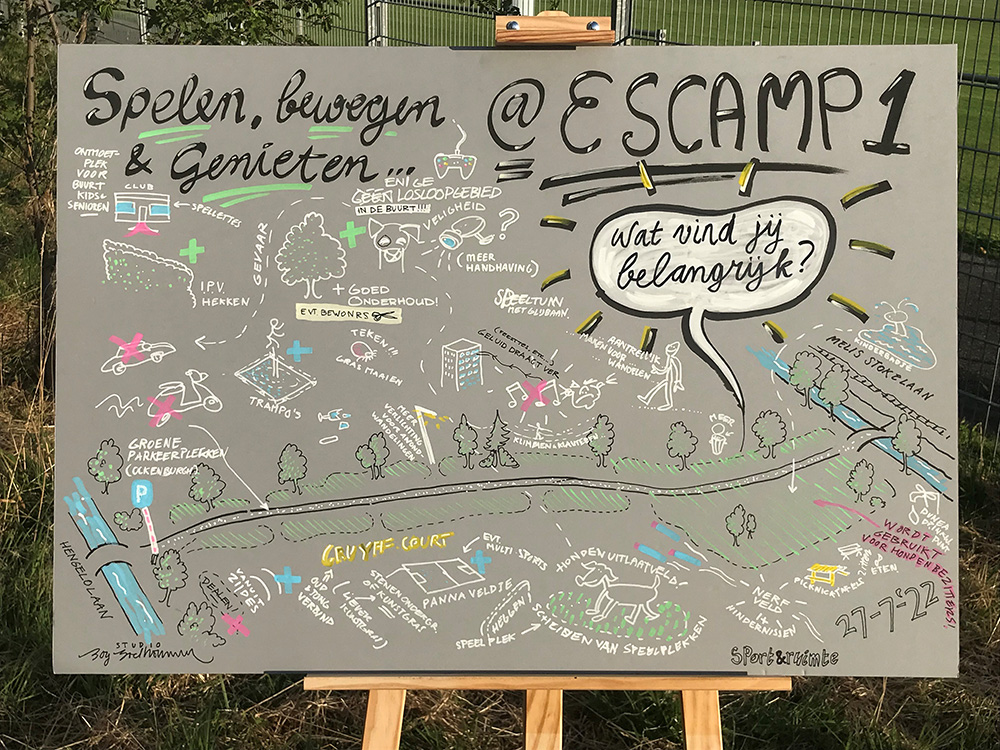 Spelen, bewegen
& Genieten...
@ ESCAMP 1
Wat vind jij
belangrijk?
ONTMOET-
PLEK
VOOR
BUURT
KIDS &
SENIOREN
CLUB
SPELLETJES
I.P.V.
HEKKEN
GEVAAR
ENIGE
GEEN LOSLOOPGEBIED
IN DE BUURT!!!
VEILIGHEID
(MEER
HANDHAVING)
+ GOED
ONDERHOUD!
EVT. BEWONRS
TEKEN!!!
GRAS MAAIEN
TRAMPO'S
SPEELTUIN
MET GLIJBAAN.
GELUID DRAAGT VER
AANTREKELIJK
MAKEN VOOR
WANDELEN
KINDERBADJE
MELIS STOKELAAN
MEER
VERLICHTING
VOOR AVOND
WANDELINGEN
KLIMBLEN & KLAUTEREN
MEER
GROENE
PARKEERPLEKKEN
(OCKENBURGH)
P
HENGELOLAAN
DEALEN!
CRUYFF-COURT
OUD
& JONG
VERBIND
LIEVER
KUNSTGRAS
STENEN ONDERGR
KUNSTGRAS
PANNA VELDJE
EVT.
MULTI SPORTS
HONDEN UITLAATVELD
REGELEN!
SPEELPLEK
SCHEIDEN VAN SPEELPLEKKEN
NERF
VELD
14
HINDERNISSEN
PICKNICKTAFELS
ETEN
WORDT
GEBRUIKT
VOOR HONDENBEZITTERS!
27-7-'22
STUDIO
Sport & ruimte